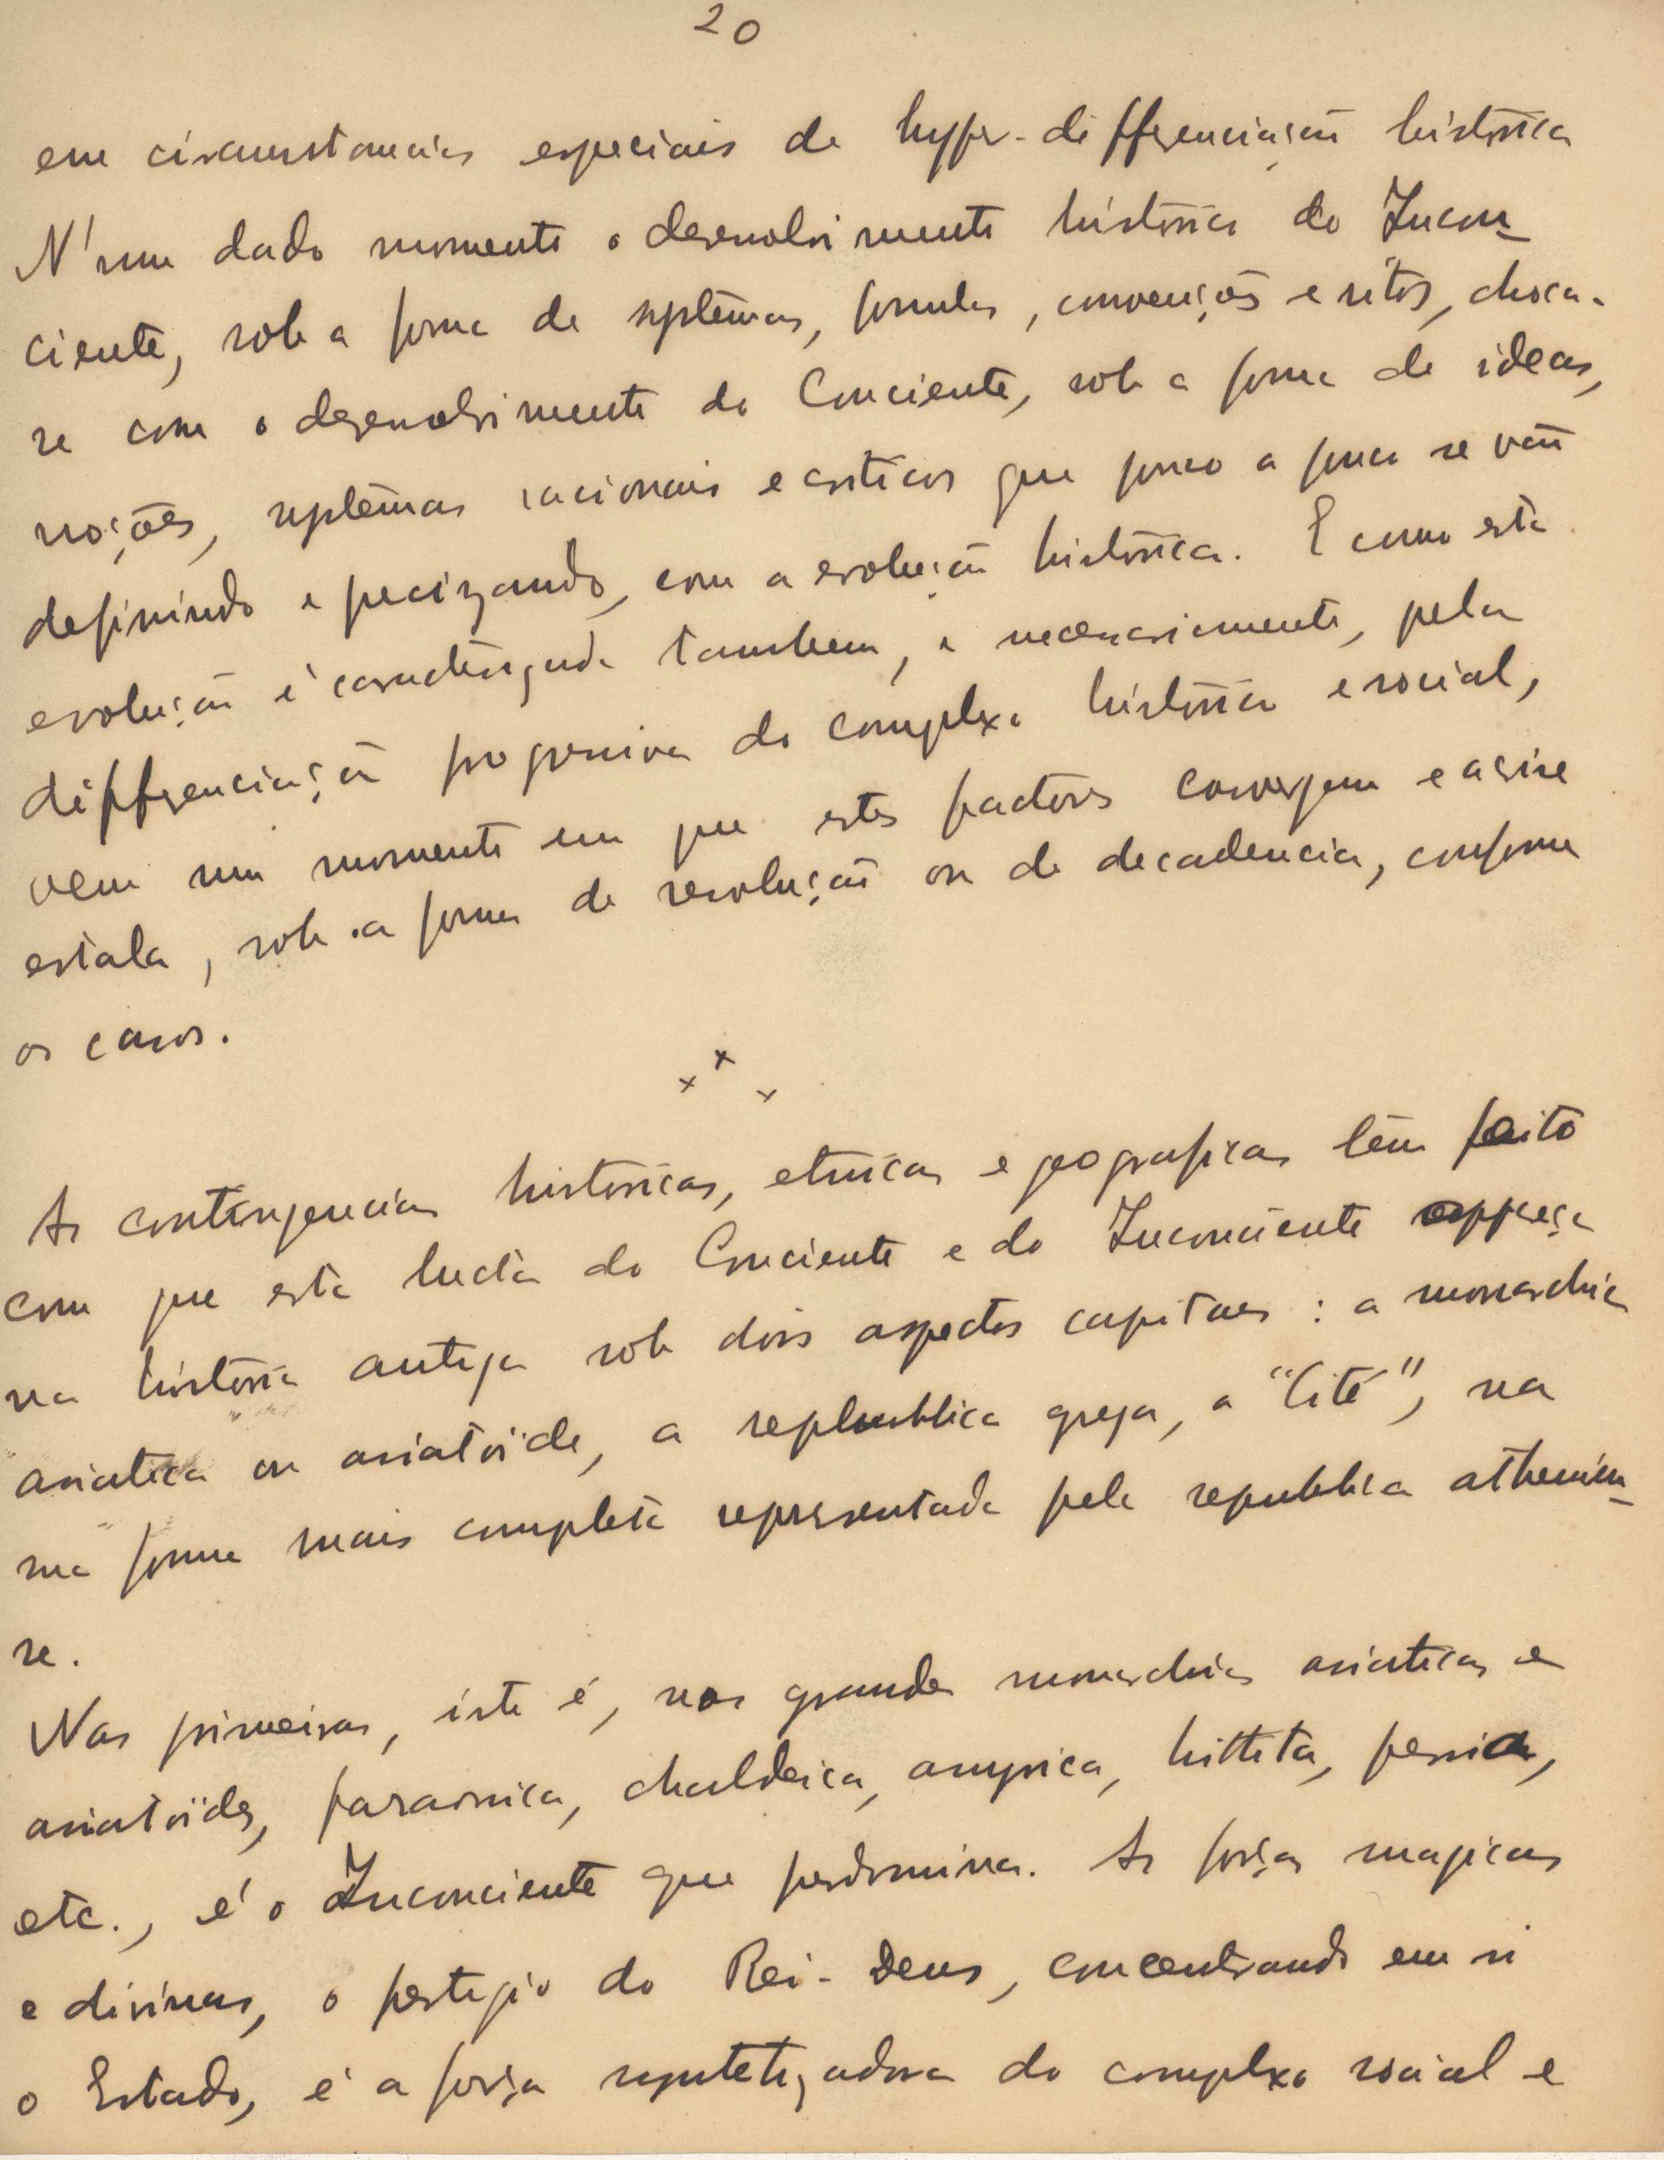 20
em circumstancias especiais de hyper-differenciação histórica
N'um dado momento o desenvolvimento histórico do Incon-
ciente, sob a forma de systêmas, formulas, convenções e ritos, choca-
se com o desenvolvimento do Conciente, sob a forma de ideas,
noções, systêmas racionais e criticos que pouco a pouco se vão
definindo e precizando, com a evolução histórica. E como esta
evolução é caracterizada tambem, e necessariamente, pela
differenciação progressiva do complexo histórico e social,
vem um momento em que estes factores convergem e a crise
estala, sob a forma de revolução ou de decadencia, conforme
os casos.
x x x
As contingencias historicas, etnicas e geograficas têm feito
com que esta lucta do Conciente e do Inconciente appareça
na história antiga sob dois aspectos capitaes : a monarchia
asiatica ou asiatoïde, a republica grega, a "Cité", na
sua forma mais completa representada pela republica athenien-
se.
Nas primeiras, isto é, nas grandes monarchias asiaticas e
asiatoïdes, faraonica, chaldaica, assyrica, hittita, persica,
etc., é o Inconciente que predomina. As forças magicas
e divinas, o prestigio do Rei-Deus, concentrando em si
o Estado, é a força syntetizadora do complexo social e